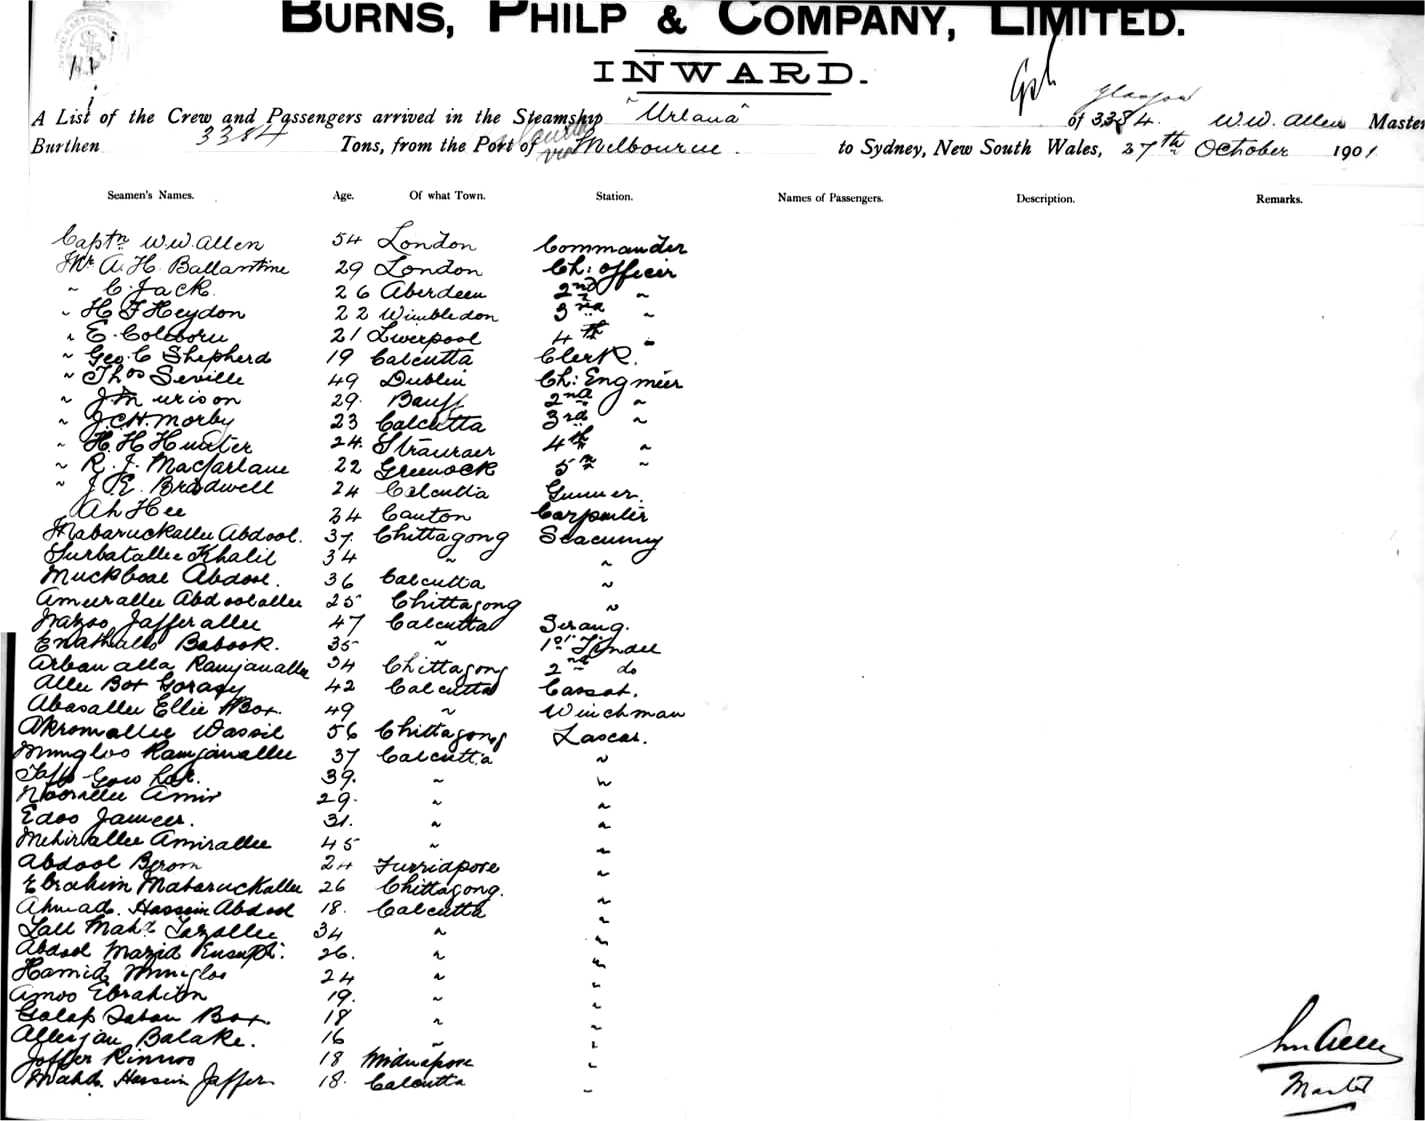 BURNS, PHILP & COMPANY, LIMITED.
INWARD.
A List of the Crew and Passengers arrived in the Steamship "Urlana" of Glasgow 3384. W.W. Allen Master
Burthen 3384 Tons, from the Port of via Melbourne. to Sydney, New South Wales, 27th October 1901
Seamen's Names. Age. Of what Town. Station. Names of Passengers. Description. Remarks.
Captn W.W. Allen 54 London Commander
Mr A. H. Ballantine 29 London Ch: Officer
" C. Jack 26 Aberdeen 2nd "
" H F Heydon 22 Wimbledon 3rd "
" E. Colborn 21 Liverpool 4th "
" Geo. C Shepherd 19 Calcutta Clerk.
" Thos Seville 49 Dublin Ch: Engineer
" J Murison 29. Banff 2nd "
" J.C.H. Morby 23 Calcutta 3rd "
" H. H Hunter 24. Stranraer 4th "
" R. J. Macfarlane 22 Greenock 5th "
" J. E. Bradwell 24 Calcutta Gunner.
Ah Hee 34 Canton Carpenter
Mabaruckallee Abdool. 37. Chittagong Seacunny
Surbatallee Khalil 34 " "
Muckbool Abdool. 36 Calcutta "
Ameerallee Abdoolallee 25 Chittagong "
Jafferallee 47 Calcutta Serang.
Babook. 35 " 1st Tindel
Ramjanallee 34 Chittagong 2nd do
Allee Box Goragy 42 Calcutta Cassab.
Abasallee Ellie Box. 49 " Winchman
Akromallee Wassil 56 Chittagong Lascar.
Mungloo Ramjanallee 37 Calcutta "
39. " "
Noorallee Amir 29. " "
Edoo Jameer. 31. " "
Mehirallee Amirallee 45 " "
Abdool 24 Furridpore "
Ebrahim Mabaruckallee 26 Chittagong. "
Ahmad. Hossein Abdool 18. Calcutta "
Lall Mahd Tazallee 34 " "
Abdool Mazid 26. " "
Hamid Mungloo 24 " "
Amoo Ebrahim 19. " "
Golap Box 18 " "
Alleejan Balake. 16 " "
Joffer 18 Midnapore "
Mahd. Hossein Jaffer 18. Calcutta "
Allen
Master